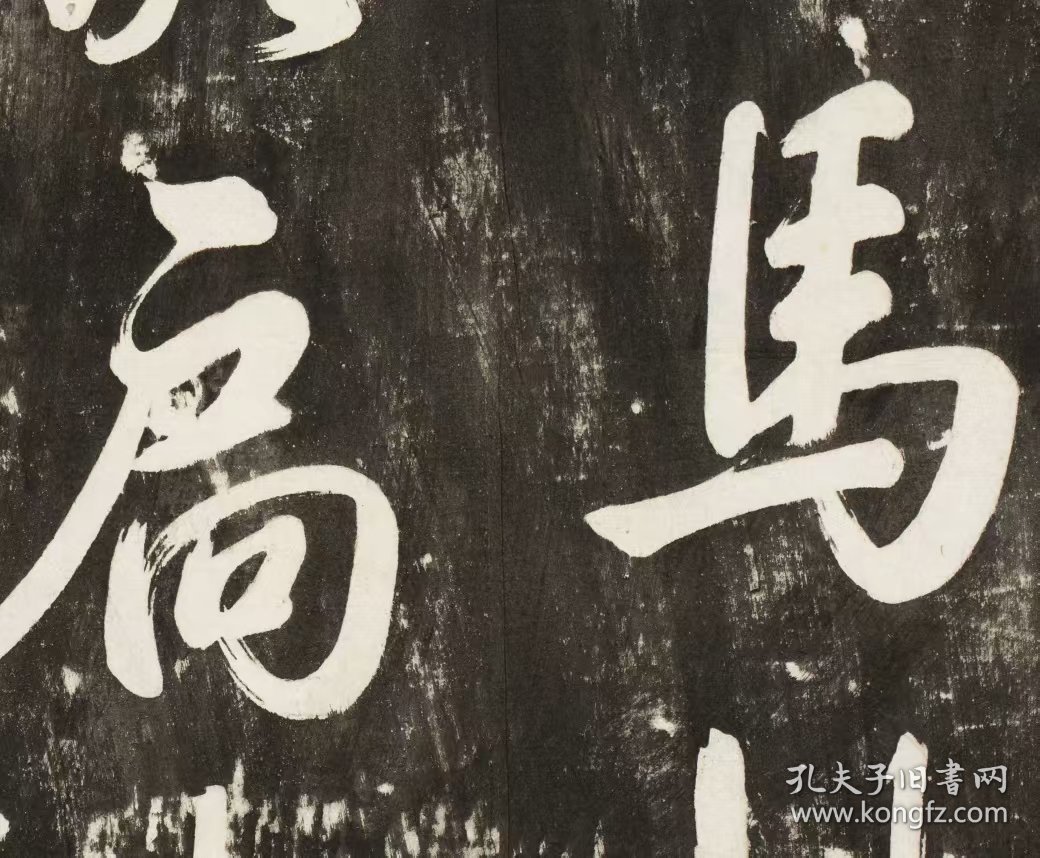 馬
扃
孔夫子旧書网
www.kongfz.com